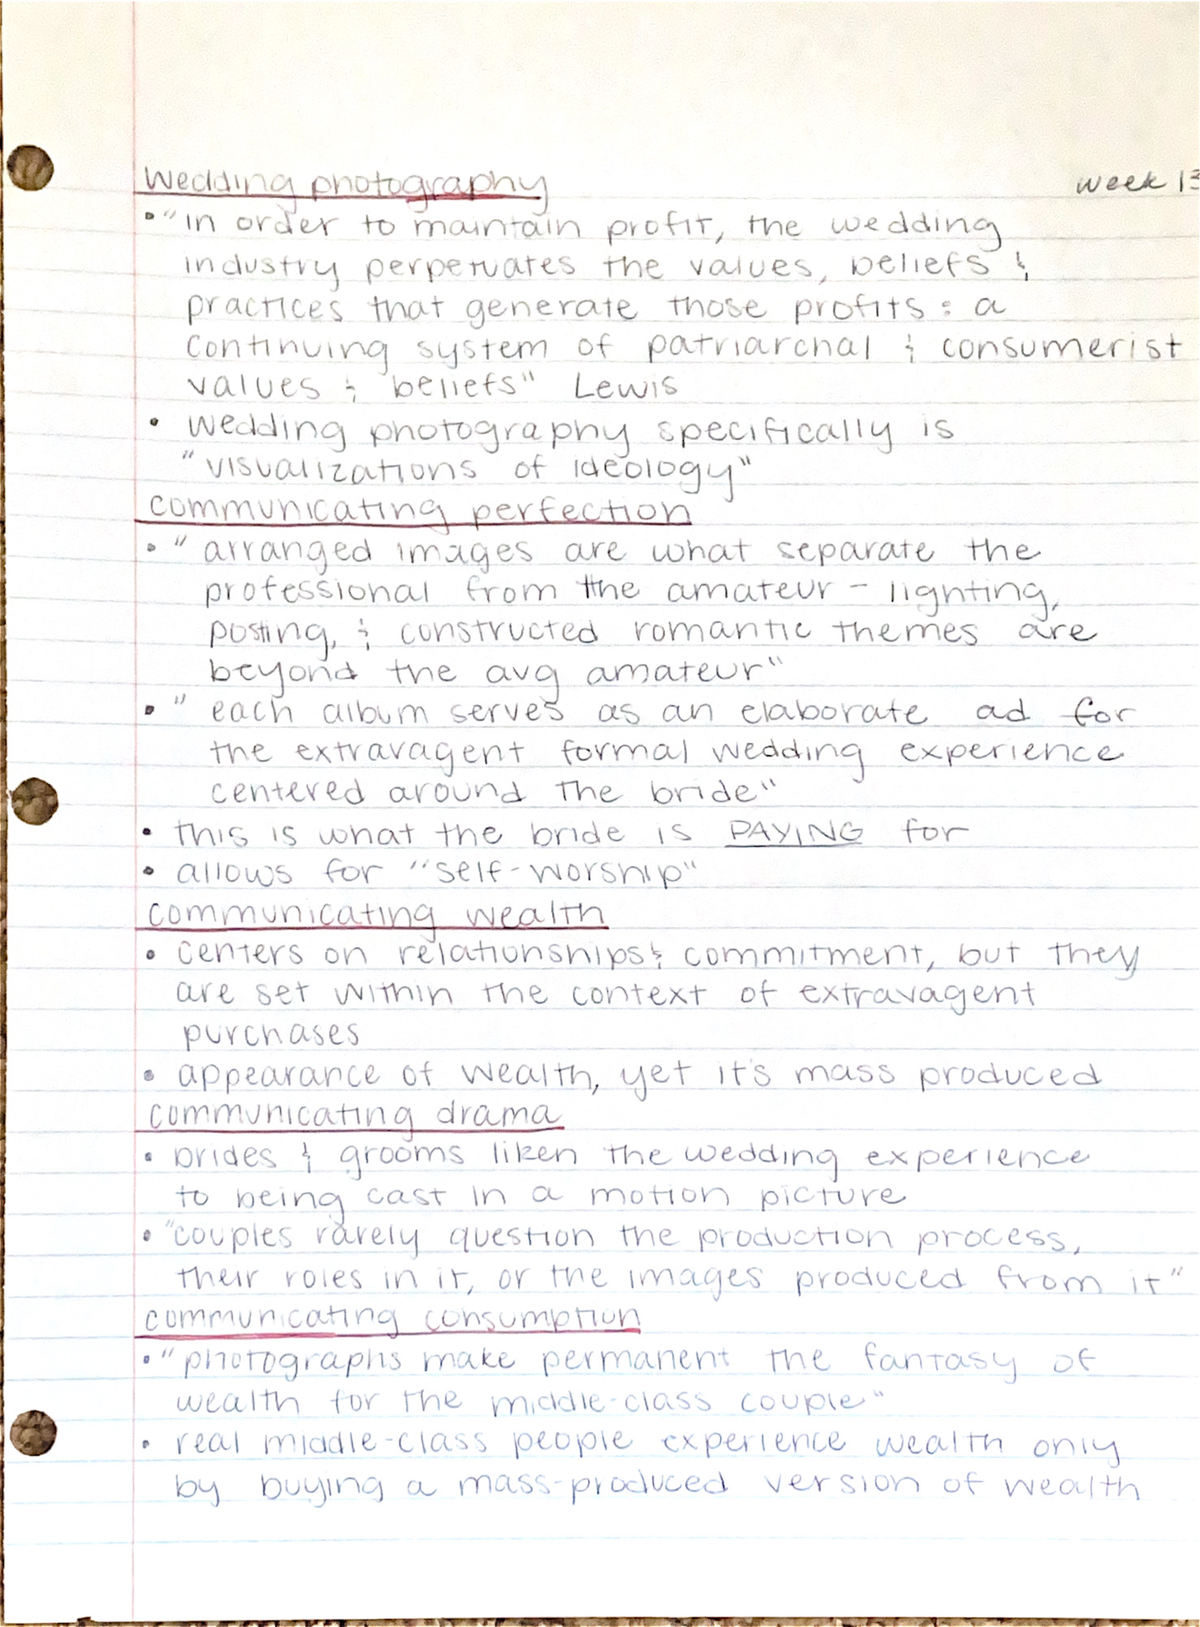 wedding photography week 13
• "in order to maintain profit, the wedding
industry perpetuates the values, beliefs &
practices that generate those profits: a
continuing system of patriarchal & consumerist
values & beliefs" Lewis
• wedding photography specifically is
"visualizations of ideology"
communicating perfection
• "arranged images are what separate the
professional from the amateur - lighting,
posting, & constructed romantic themes are
beyond the avg amateur"
• "each album serves as an elaborate ad for
the extravagent formal wedding experience
centered around the bride"
• this is what the bride is PAYING for
• allows for "self-worship"
communicating wealth
• centers on relationships & commitment, but they
are set within the context of extravagent
purchases
• appearance of wealth, yet it's mass produced
communicating drama
• brides & grooms liken the wedding experience
to being cast in a motion picture
• "couples rarely question the production process,
their roles in it, or the images produced from it"
communicating consumption
• "photographs make permanent the fantasy of
wealth for the middle-class couple"
• real middle-class people experience wealth only
by buying a mass-produced version of wealth